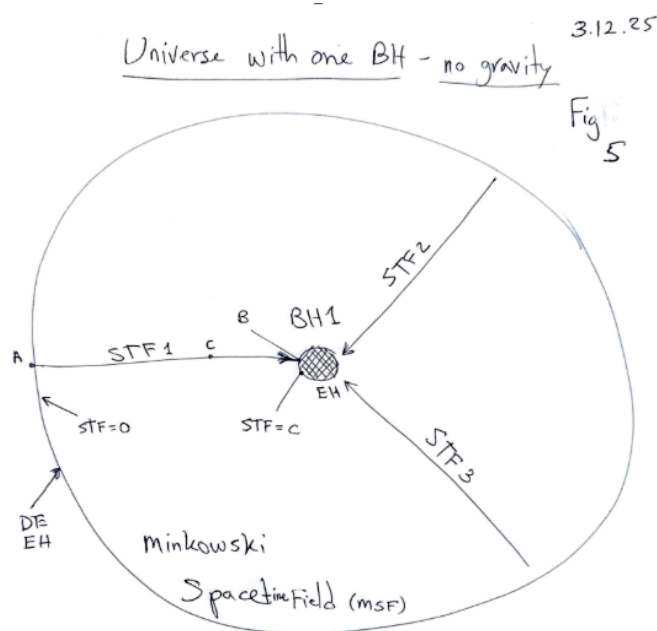 3.12.25
Universe with one BH - no gravity
Fig
5
STF2
B
BH1
A
STF1
C
EH
STF=0
STF=C
STF3
DE
EH
Minkowski
Spacetime Field (MSF)